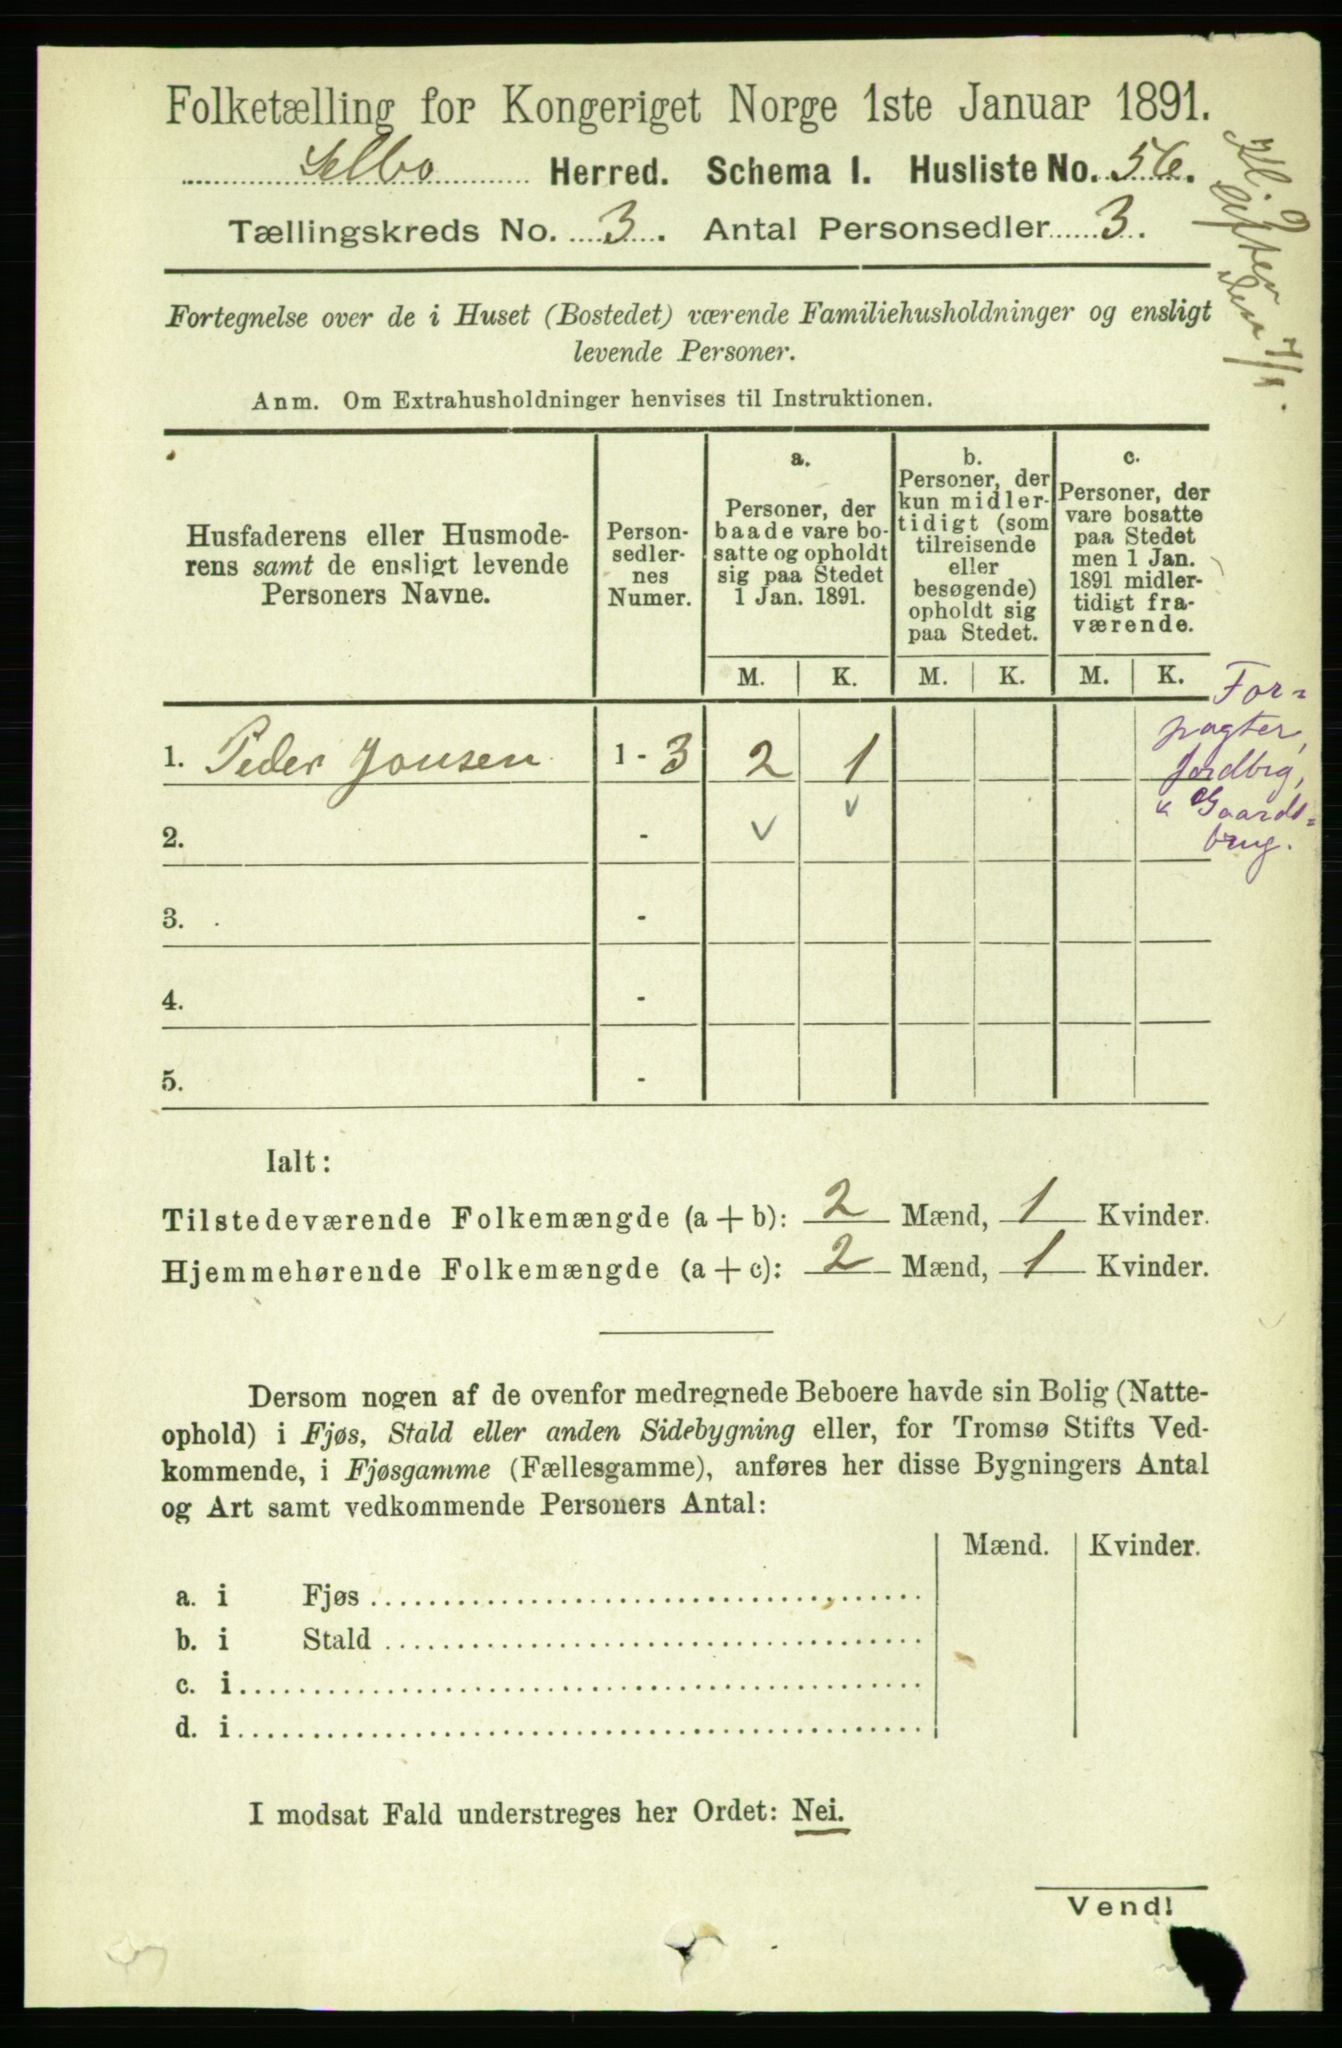 Folketælling for Kongeriget Norge 1ste Januar 1891.
Selbo Herred. Schema I. Husliste No. 56.
Tællingskreds No. 3. Antal Personsedler 3.
Kl. 9
Efter
den 7/1.
Fortegnelse over de i Huset (Bostedet) værende Familiehusholdninger og ensligt
levende Personer.
Anm. Om Extrahusholdninger henvises til Instruktionen.
Husfaderens eller Husmode-
rens samt de ensligt levende
Personers Navne.
Person-
sedler-
nes
Numer.
a.
Personer, der
baade vare bo-
satte og opholdt
sig paa Stedet
1 Jan. 1891.
b.
Personer, der
kun midler-
tidigt (som
tilreisende
eller
besøgende)
opholdt sig
paa Stedet.
c.
Personer, der
vare bosatte
paa Stedet
men 1 Jan.
1891 midler-
tidigt fra-
værende.
M. K. M. K. M. K.
1. Peder Jonsen 1 - 3 2 1
For-
pagter,
Jordbrg,
Gaards=
brug.
2. -
3. -
4. -
5. -
Ialt:
Tilstedeværende Folkemængde (a + b): 2 Mænd, 1 Kvinder.
Hjemmehørende Folkemængde (a + c): 2 Mænd, 1 Kvinder.
Dersom nogen af de ovenfor medregnede Beboere havde sin Bolig (Natte-
ophold) i Fjøs, Stald eller anden Sidebygning eller, for Tromsø Stifts Ved-
kommende, i Fjøsgamme (Fællesgamme), anføres her disse Bygningers Antal
og Art samt vedkommende Personers Antal:
Mænd. Kvinder.
a. i Fjøs
b. i Stald
c. i
d. i
I modsat Fald understreges her Ordet: Nei.
Vend!